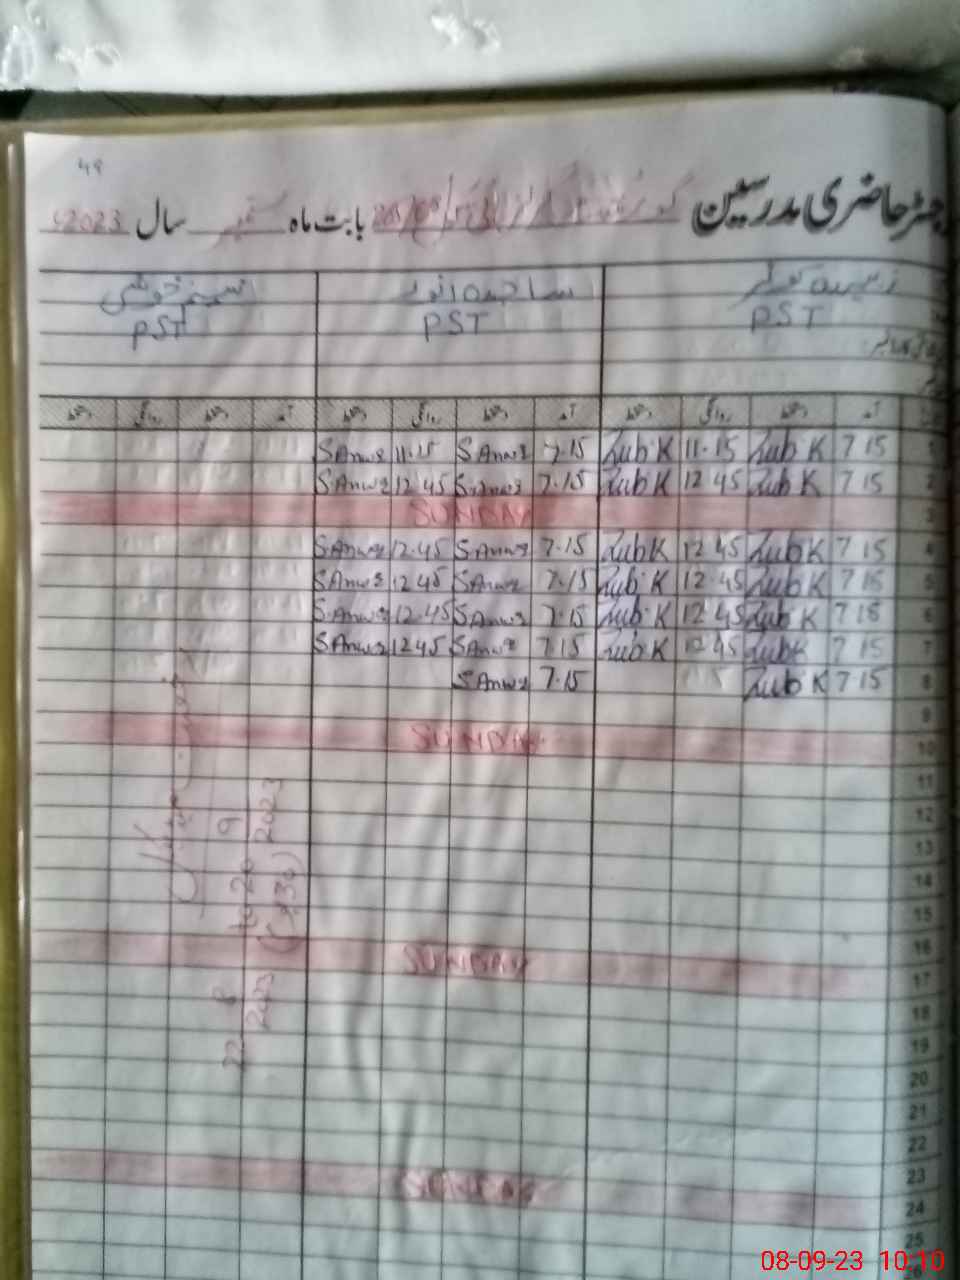 49
رجسٹر حاضری مدرسین گورنمنٹ گرلز بابت ماہ ستمبر سال 2023ء
زبیدہ کوثر ساجدہ انور نسیم خوشی
PST PST PST
آمد دستخط روانگی دستخط آمد دستخط روانگی دستخط آمد دستخط روانگی دستخط
1 7 15 Zub K 11.15 Zub K 7.15 S Anwar 11.15 S Anwar
2 7 15 Zub K 12 45 Zub K 7.15 S Anwar 12 45 S Anwar
3 SUNDAY
4 7 15 Zub K 12 45 Zub K 7.15 S Anwar 12.45 S Anwar
5 7 15 Zub K 12.45 Zub K 7.15 S Anwar 12 45 S Anwar
6 7 15 Zub K 12 45 Zub K 7.15 S Anwar 12.45 S Anwar
7 7 15 Zub K 12 45 Zub K 7.15 S Anwar 12 45 S Anwar
8 7 15 Zub K 7.15 S Anwar
9
10 SUNDAY
11
12
13
14
15
16
17 SUNDAY
18
19
20
21
22
23
24 SUNDAY
25
26
22 8 2023 to 20 9 2023
08-09-23 10:10